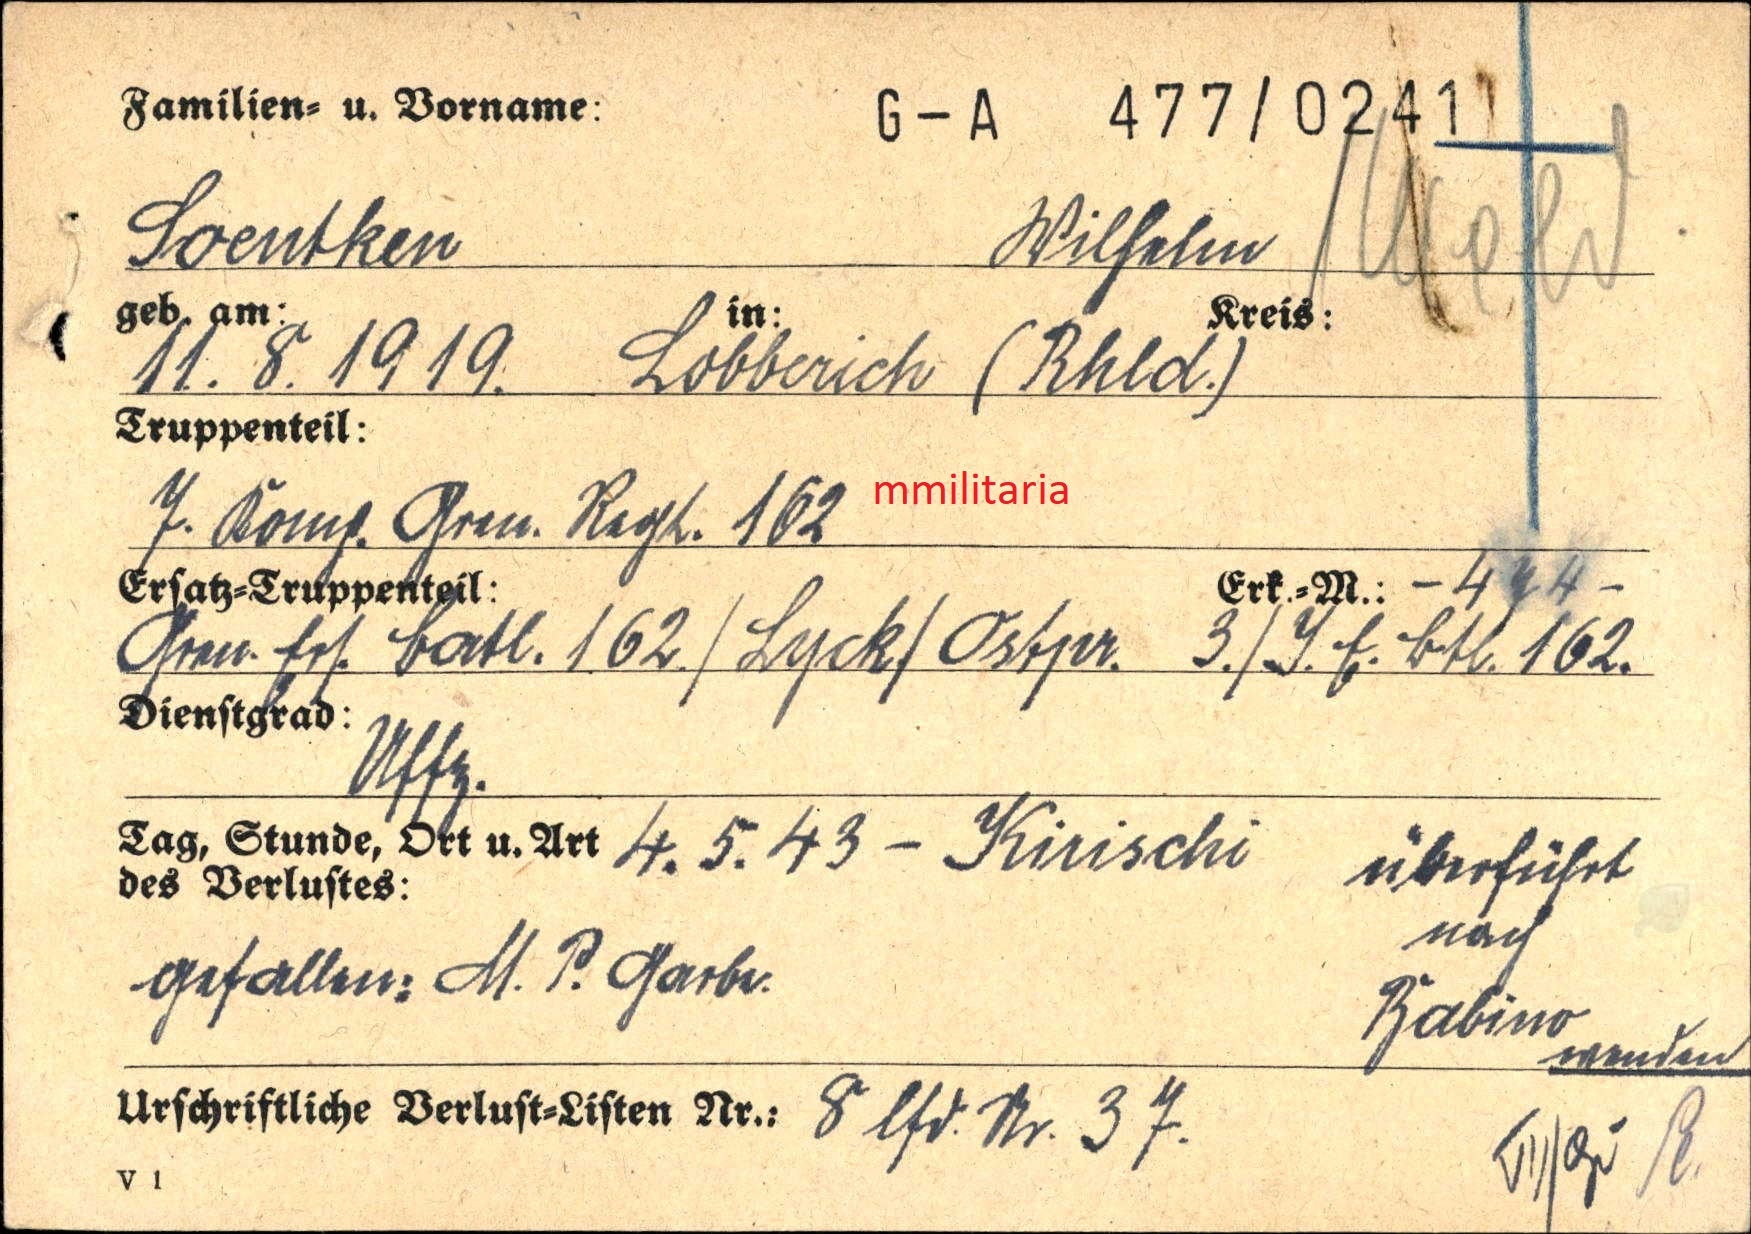 Familien- u. Vorname: G-A 477/0241
Soentken Wilhelm
geb. am: in: Kreis:
11. 8. 1919. Lobberich (Rhld.)
Truppenteil:
7. Komp. Gren. Regt. 162
mmilitaria
Ersatz-Truppenteil: Erk.-M.: - 474 -
Gren. Ers. Batl. 162./Lyck/Ostpr. 3./J. E. Btl. 162.
Dienstgrad:
Uffz.
Tag, Stunde, Ort u. Art 4. 5. 43 - Kirischi
des Verlustes:
überführt
nach
gefallen: M. P. Garbe.
Babino
wenden
Urschriftliche Verlust-Listen Nr.: 8 lfd. Nr. 37.
V 1